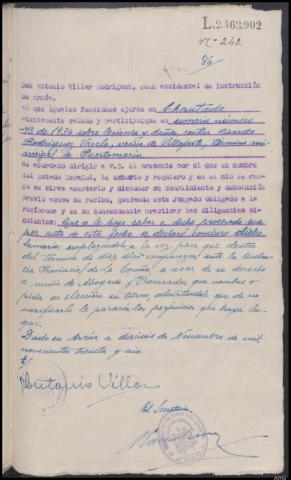 L.2463.902
nº 242
86
Don Antonio Villar Rodriguez, Juez accidental de instrucción
de Arzúa.
Al que iguales funciones ejerce en Chantada
atentamente saludo y participo que en sumario número
73 de 1936 sobre lesiones y daños contra Ricardo
Rodriguez Varela, vecino de Villajuste, término mu-
nicipal de Puertomarin
he acordado dirigir a V.S. el presente por el que en nombre
del Estado Español, le exhorto y requiero y en el mio le rue-
go se sirva aceptarlo y disponer su cumplimiento y devolución
previo acuse de recibo, quedando este Juzgado obligado a la
recíproca y en su consecuencia practicar las diligencias si-
guientes: Que se le haga saber a dicho procesado que
por auto de esta fecha se declaró concluso dicho
sumario emplazándole a la vez para que dentro
del término de diez dias comparezca ante la Audien-
cia Provincial de La Coruña a usar de su derecho
por medio de Abogado y Procurador que nombre o
pida su elección en turno, advirtiéndole que de no
verificarlo le pararán los perjuicios que haya lu-
gar.
Dado en Arzúa a de Noviembre de mil
novecientos treinta y seis.
Antonio Villar
El Secretario